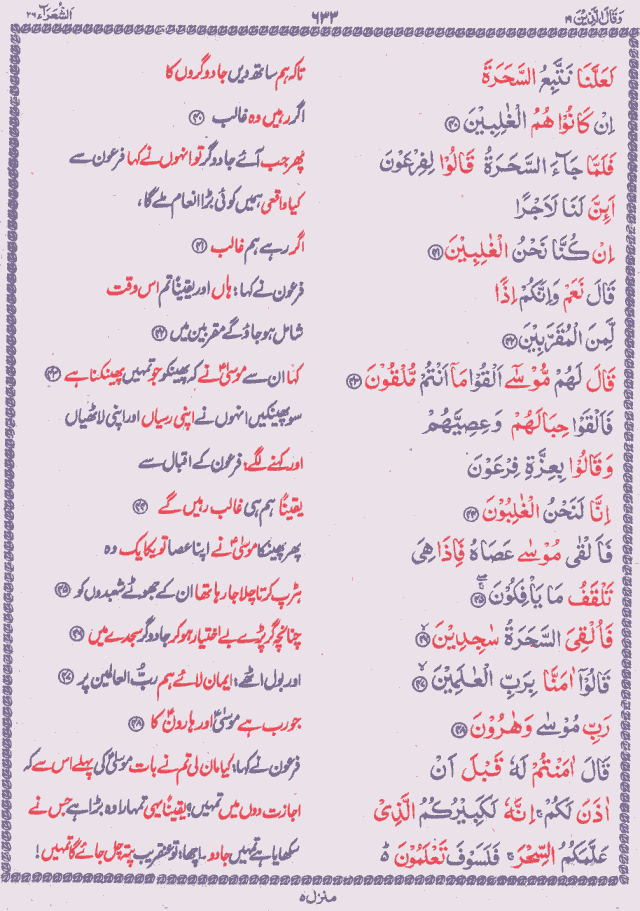 وَقَالَ الَّذِيْنَ ۱۹ ۶۳۳ الشُّعَرَآء ۲۶
لَعَلَّنَا نَتَّبِعُ السَّحَرَةَ تاکہ ہم ساتھ دیں جادوگروں کا
اِنْ كَانُوْا هُمُ الْغٰلِبِيْنَ ۴۰ اگر رہیں وہ غالب ۴۰
فَلَمَّا جَآءَ السَّحَرَةُ قَالُوْا لِفِرْعَوْنَ پھر جب آئے جادوگر تو انہوں نے کہا فرعون سے
اَئِنَّ لَنَا لَاَجْرًا کیا واقعی ہمیں کوئی بڑا انعام ملے گا،
اِنْ كُنَّا نَحْنُ الْغٰلِبِيْنَ ۴۱ اگر رہے ہم غالب ۴۱
قَالَ نَعَمْ وَاِنَّكُمْ اِذًا فرعون نے کہا: ہاں اور یقیناً تم اس وقت
لَّمِنَ الْمُقَرَّبِيْنَ ۴۲ شامل ہوجاؤ گے مقربین میں ۴۲
قَالَ لَهُمْ مُّوْسٰٓى اَلْقُوْا مَآ اَنْتُمْ مُّلْقُوْنَ ۴۳ کہا ان سے موسیٰؑ نے کہ پھینکو جو تمہیں پھینکنا ہے ۴۳
فَاَلْقَوْا حِبَالَهُمْ وَعِصِيَّهُمْ سو پھینکیں انہوں نے اپنی رسیاں اور اپنی لاٹھیاں
وَقَالُوْا بِعِزَّةِ فِرْعَوْنَ اور کہنے لگے: فرعون کے اقبال سے
اِنَّا لَنَحْنُ الْغٰلِبُوْنَ ۴۴ یقیناً ہم ہی غالب رہیں گے ۴۴
فَاَلْقٰى مُوْسٰى عَصَاهُ فَاِذَا هِىَ پھر پھینکا موسیٰؑ نے اپنا عصا تو یکایک وہ
تَلْقَفُ مَا يَاْفِكُوْنَ ۴۵ ہڑپ کرتا چلا جا رہا تھا ان کے جھوٹے شعبدوں کو ۴۵
فَاُلْقِىَ السَّحَرَةُ سٰجِدِيْنَ ۴۶ چنانچہ گر پڑے بے اختیار ہوکر جادوگر سجدے میں ۴۶
قَالُوْٓا اٰمَنَّا بِرَبِّ الْعٰلَمِيْنَ ۴۷ اور بول اٹھے: ایمان لائے ہم ربّ العالمین پر ۴۷
رَبِّ مُوْسٰى وَهٰرُوْنَ ۴۸ جو رب ہے موسیٰؑ اور ہارونؑ کا ۴۸
قَالَ اٰمَنْتُمْ لَهٗ قَبْلَ اَنْ فرعون نے کہا: کیا مان لی تم نے بات موسیٰؑ کی پہلے اس سے کہ
اٰذَنَ لَكُمْ ۚ اِنَّهٗ لَكَبِيْرُكُمُ الَّذِىْ اجازت دوں میں تمہیں؟ یقیناً یہی تمہارا وہ بڑا ہے جس نے
عَلَّمَكُمُ السِّحْرَ ۚ فَلَسَوْفَ تَعْلَمُوْنَ ۬ؕ سکھایا ہے تمہیں جادو۔ اچھا، تو عنقریب پتہ چل جائے گا تمہیں!
منزل ۵